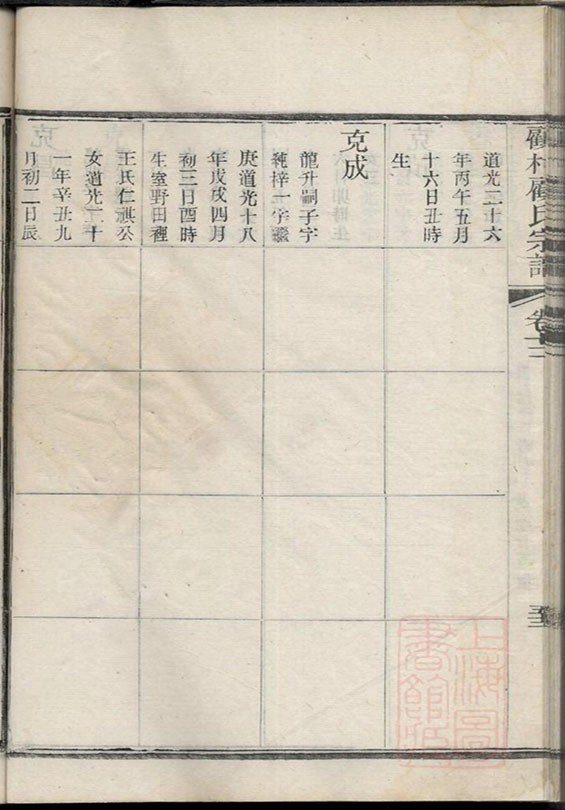 村顧氏宗譜
卷十三
道光二十六
年丙午五月
十六日丑時
生
克成
龍升嗣子字
純梓一字
庚道光十八
年戊戌四月
初三日酉時
生室野田裡
王氏仁祺公
女道光二十
一年辛丑九
月初二日辰
上海圖
書館藏